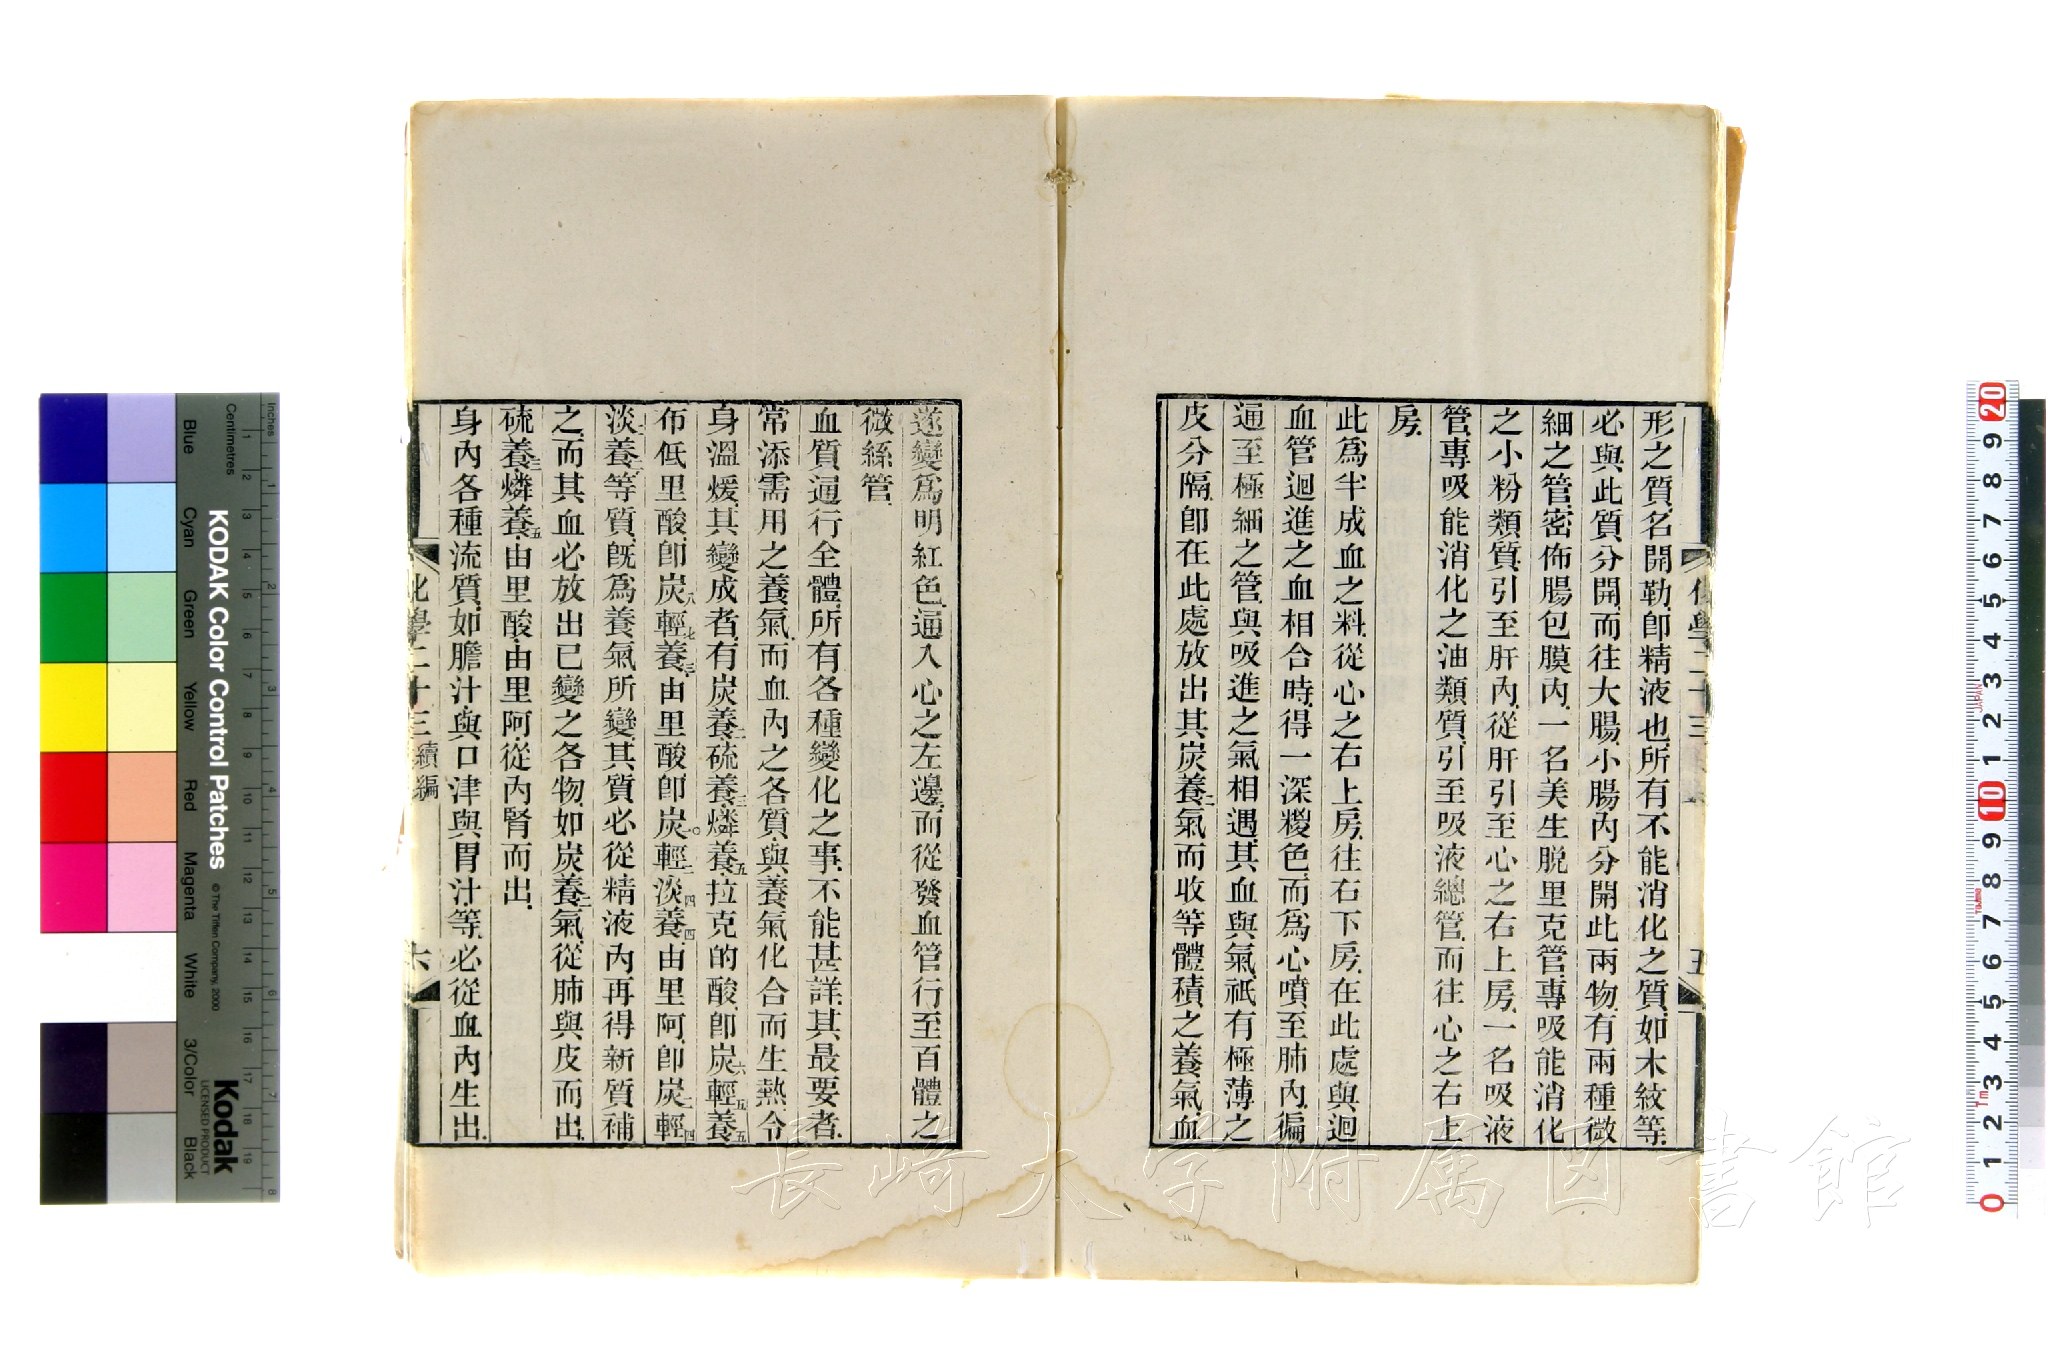 形之質、名開勒、卽精液也、所有不能消化之質、如木紋等、
必與此質分開、而往大腸、小腸內分開此兩物、有兩種微
細之管、密佈腸包膜內、一名美生脫里克管、專吸能消化
之小粉類質、引至肝內、從肝引至心之右上房、一名吸液
管、專吸能消化之油類質、引至吸液總管、而往心之右上
房、
此爲半成血之料、從心之右上房、往右下房、在此處與迴
血管迴進之血相合時、得一深糉色、而爲心噴至肺內、徧
通至極細之管、與吸進之氣相遇、其血與氣、祇有極薄之
皮分隔、卽在此處放出其炭養二氣、而收等體積之養氣、血
化學二十三
五
遂變爲明紅色、通入心之左邊、而從發血管行至百體之
微絲管、
血質通行全體、所有各種變化之事、不能甚詳、其最要者、
常添需用之養氣、而血內之各質、與養氣化合而生熱、令
身溫煖、其變成者、有炭養二、硫養三、燐養五、拉克的酸卽炭六輕五養五、
布低里酸卽炭八輕七養三、由里酸卽炭一〇輕四淡四養六、由里阿、卽炭二輕四
淡二養二、等質、旣爲養氣所變、其質必從精液內再得新質補
之、而其血必放出已變之各物、如炭養二氣、從肺與皮而出、
硫養三、燐養五、由里酸、由里阿、從內腎而出、
身內各種流質、如膽汁與口津與胃汁等、必從血內生出、
化學二十三續編
六
Inches
Centimetres
Blue
Cyan
Green
Yellow
Red
Magenta
White
3/Color
Black
KODAK Color Control Patches
© The Tiffen Company, 2000
Kodak
LICENSED PRODUCT
JAPAN
長崎大学附属図書館